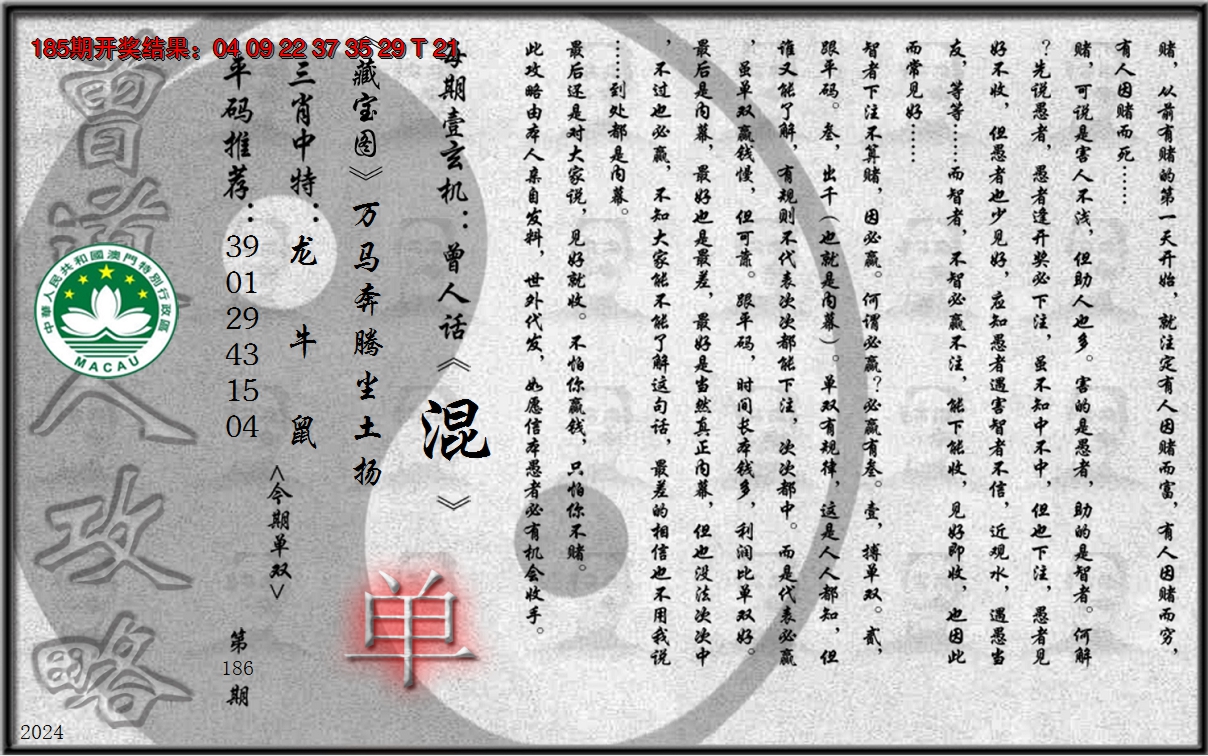 185期开奖结果：04 09 22 37 35 29 T 21
赌，从前有赌的第一天开始，就注定有人因赌而富，有人因赌而穷，
有人因赌而死……
赌，可说是害人不浅，但助人也多。害的是愚者，助的是智者。何解
？先说愚者，愚者逢开奖必下注，虽不知中不中，但也下注，愚者见
好不收，但愚者也少见好，应知愚者遇害智者不信，近观水，遇愚当
友，等等……而智者，不智必赢不注，能下能收，见好即收，也因此
而常见好……
智者下注不算赌，因必赢。何谓必赢？必赢有叁。壹，搏单双。贰，
跟平码。叁，出千（也就是内幕）。单双有规律，这是人人都知，但
谁又能了解，有规则不代表次次都能下注，次次都中。而是代表必赢
，虽单双赢钱慢，但可靠。跟平码，时间长本钱多，利润比单双好。
最后是内幕，最好也是最差，最好是当然真正内幕，但也没法次次中
，不过也必赢，不知大家能不能了解这句话，最差的相信也不用我说
……到处都是内幕。
最后还是对大家说，见好就收。不怕你赢钱，只怕你不赌。
此攻略由本人亲自发料，世外代发，如愿信本愚者必有机会收手。
每期壹玄机：曾人话《混》
《藏宝图》万马奔腾尘土扬
单
三肖中特：龙 牛 鼠
<今期单双>
平码推荐：39 01 29 43 15 04
第186期
曾道人攻略
中華人民共和國澳門特別行政區
MACAU
2024